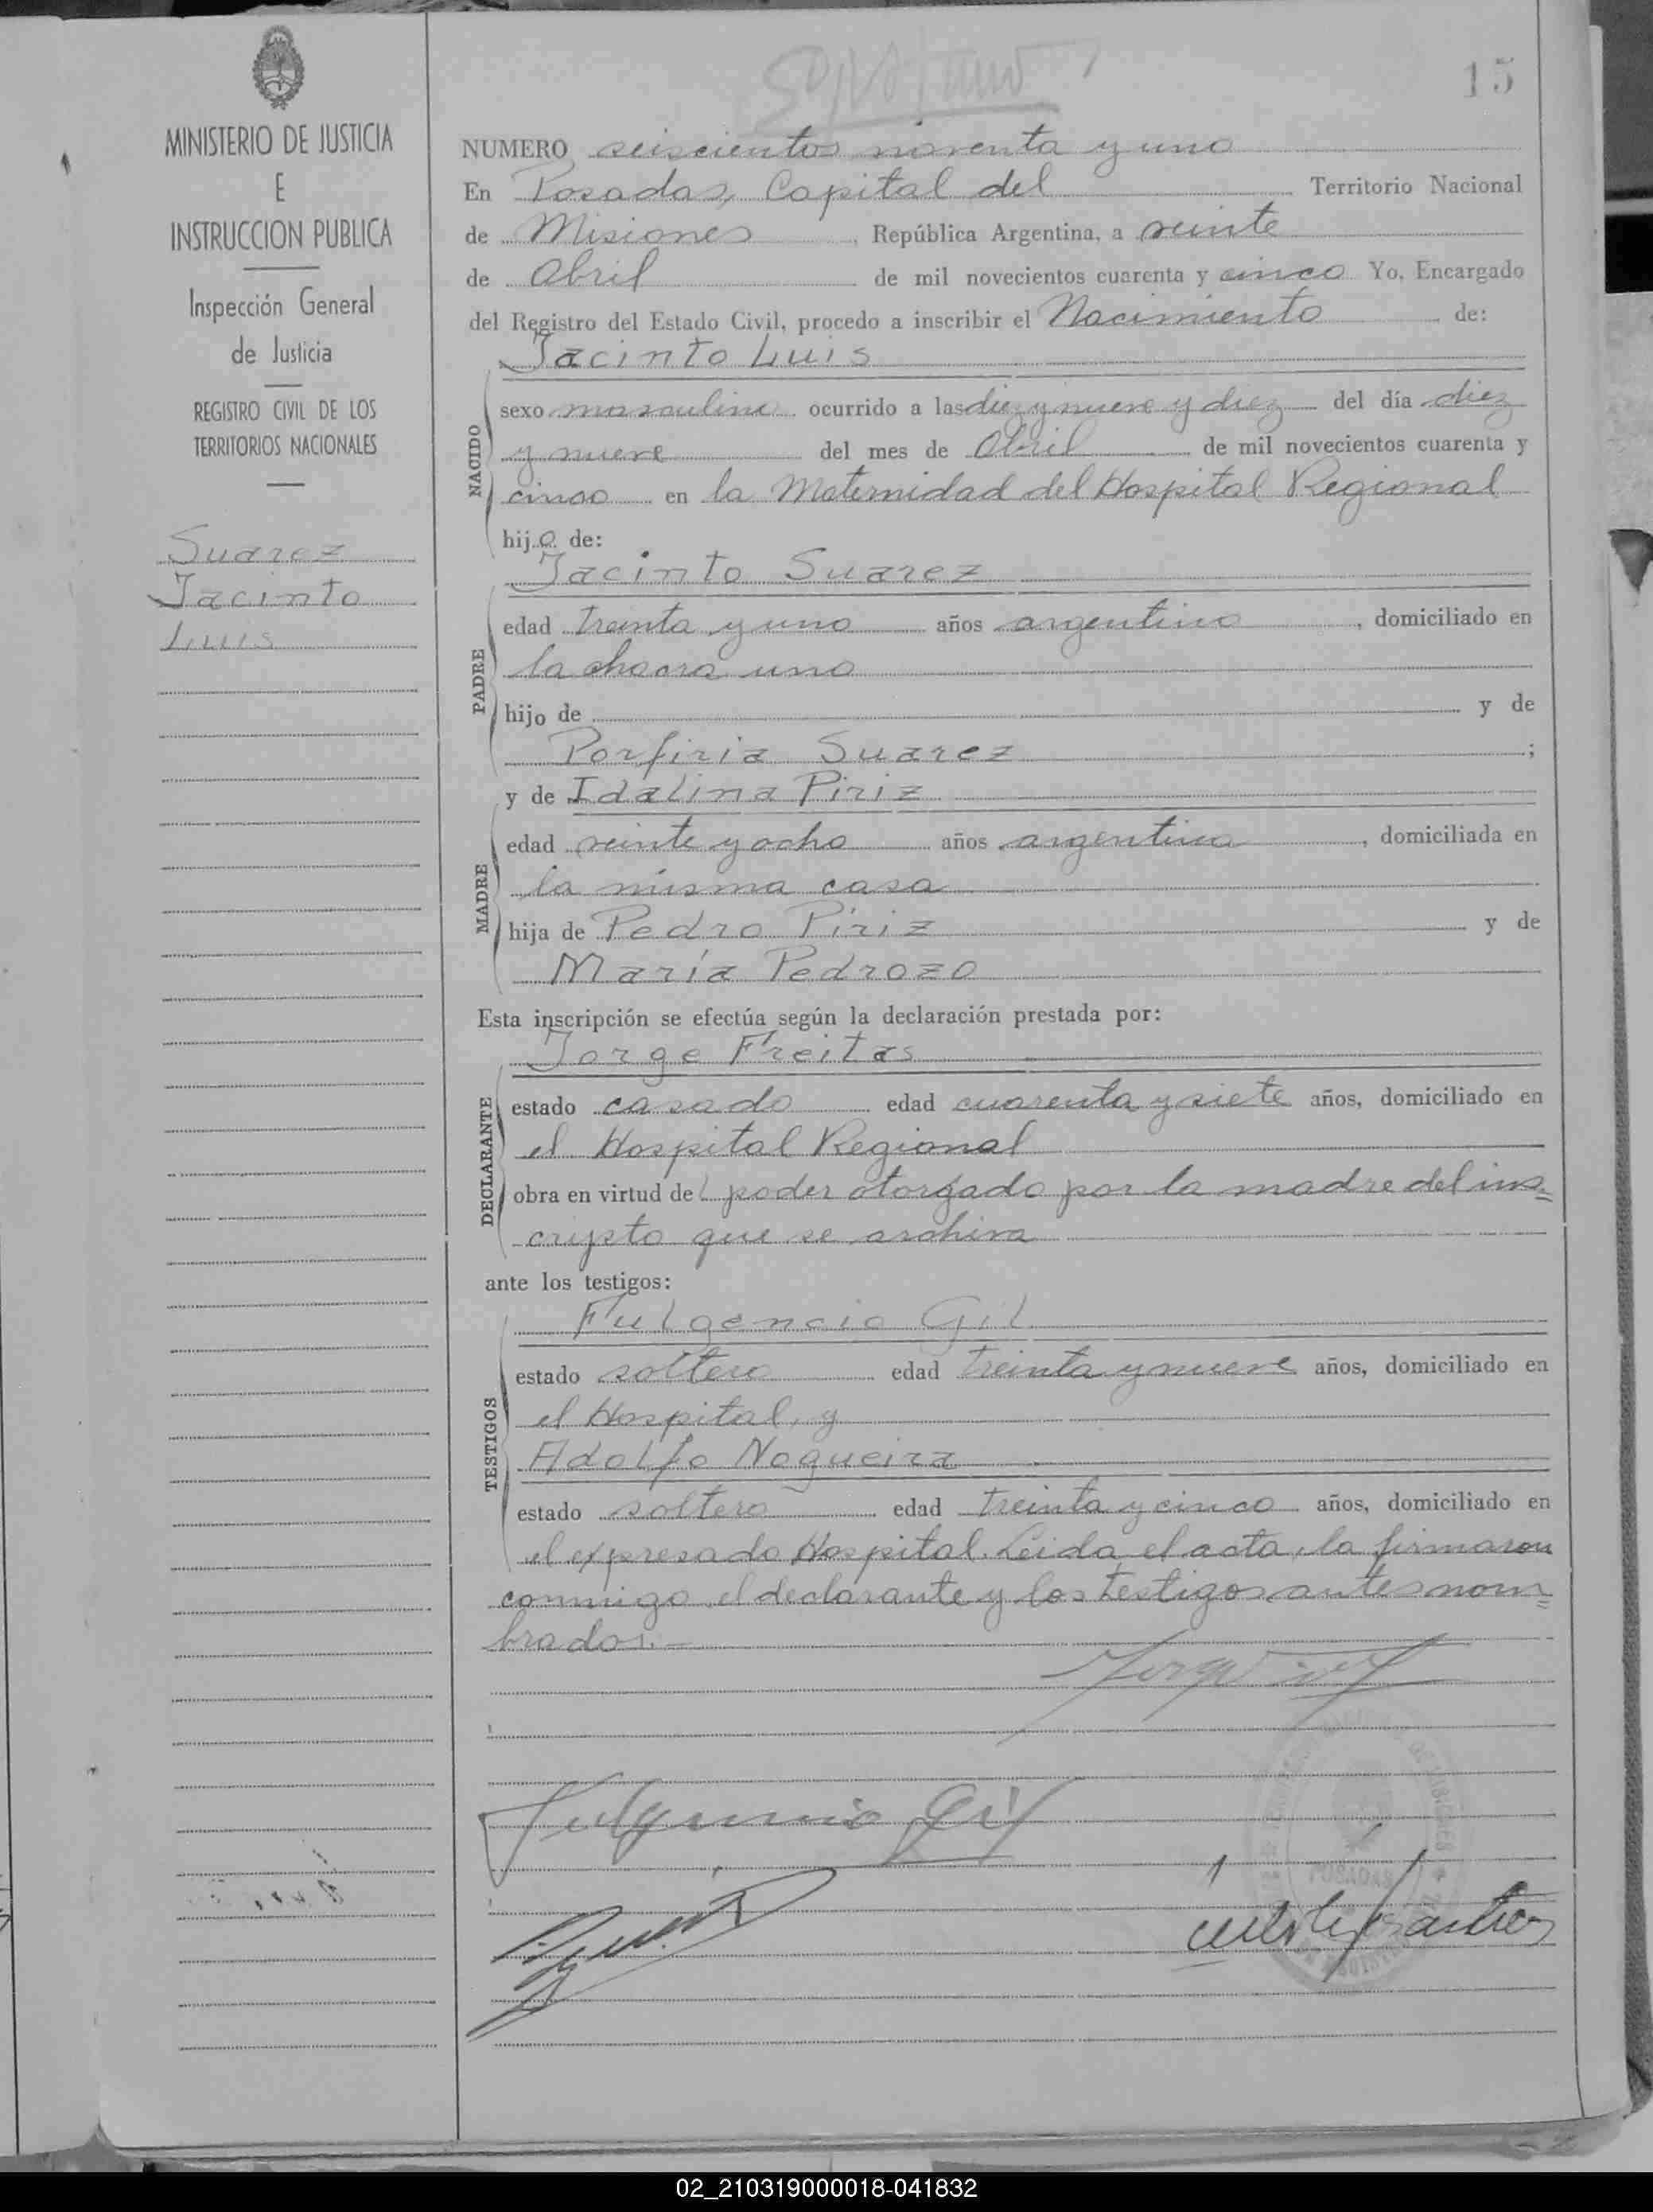 15
MINISTERIO DE JUSTICIA
E
INSTRUCCION PUBLICA
Inspección General
de Justicia
REGISTRO CIVIL DE LOS
TERRITORIOS NACIONALES
Suarez
Jacinto
Luis
NUMERO seiscientos noventa y uno
En Posadas, Capital del Territorio Nacional
de Misiones, República Argentina, a veinte
de Abril de mil novecientos cuarenta y cinco Yo, Encargado
del Registro del Estado Civil, procedo a inscribir el Nacimiento de:
Jacinto Luis
NACIDO
sexo masculino ocurrido a las diez y nueve y diez del día diez
y nueve del mes de Abril de mil novecientos cuarenta y
cinco en la Maternidad del Hospital Regional
hijo de:
Jacinto Suarez
PADRE
edad treinta y uno años argentino, domiciliado en
la chacra uno
hijo de y de
Porfiria Suarez;
y de Idalina Piriz
MADRE
edad veinte y ocho años argentina, domiciliada en
la misma casa
hija de Pedro Piriz y de
María Pedrozo
Esta inscripción se efectúa según la declaración prestada por:
Jorge Freitas
DECLARANTE
estado casado edad cuarenta y siete años, domiciliado en
el Hospital Regional
obra en virtud del poder otorgado por la madre del ins=
cripto que se archiva
ante los testigos:
Fulgencio Gil
TESTIGOS
estado soltero edad treinta y nueve años, domiciliado en
el Hospital, y
Adolfo Nogueira
estado soltero edad treinta y cinco años, domiciliado en
el expresado Hospital. Leida el acta, la firmaron
conmigo el declarante y los testigos antes nom=
brados.-
Fulgencio Gil
POSADAS
02_210319000018-041832